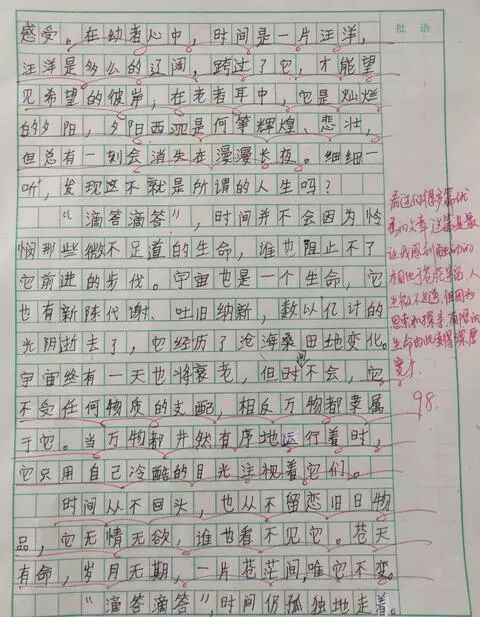 批 语
感受。在幼者心中，时间是一片汪洋，
汪洋是多么的辽阔，跨过了它，才能望
见希望的彼岸，在老者耳中，它是灿烂
的夕阳，夕阳西沉是何等辉煌、悲壮，
但总有一刻会消失在漫漫长夜。细细一
听，发现这不就是所谓的人生吗？
“滴答滴答”，时间并不会因为怜
悯那些微不足道的生命，谁也阻止不了
它前进的步伐。宇宙也是一个生命，它
也有新陈代谢、吐旧纳新，数以亿计的
光阴逝去了，它经历了沧海桑田地变化。
宇宙终有一天也将衰老，但时间不会，它
不受任何物质的支配，相反万物都隶属
于它。当万物都井然有序地运行着时，
它只用自己冷酷的目光注视着它们。
时间从不回头，也从不留恋旧日物
品，它无情无欲，谁也看不见它。苍天
有命，岁月无期，一片苍茫间，唯它不变。
“滴答滴答”，时间仍孤独地走着。
看过你很多篇优
秀的文章，这篇是最
让我感到触动的，
相比于苍茫宇宙，人
生微不足道，但因为
思索和探寻，有限的
生命由此变得深厚
宽广
98.